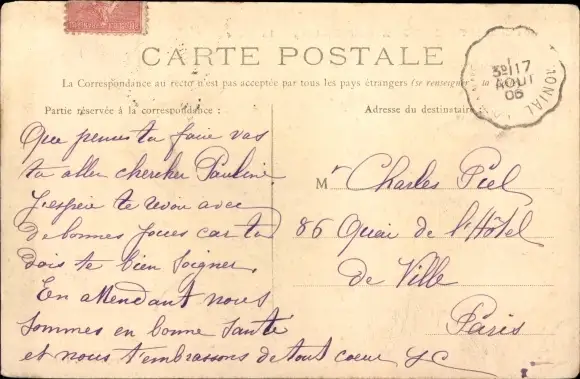 CARTE POSTALE
La Correspondance au recto n'est pas acceptée par tous les pays étrangers (se renseigner
Partie réservée à la correspondance :
Adresse du destinataire
3E/17
AOUT
06
ONIAL
Que penses tu faire vas
tu aller chercher Pauline
J'espère te revoir avec
de bonnes joues car tu
dois te bien soigner.
En attendant nous
sommes en bonne santé
et nous t'embrassons de tout coeur
Mr Charles Piel
86 Quai de l'Hôtel
de Ville
Paris